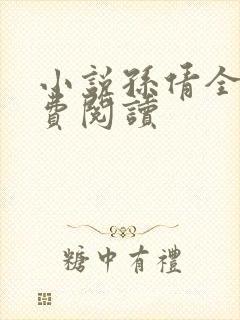 小說孫倩全
費閱讀
糖中有禮